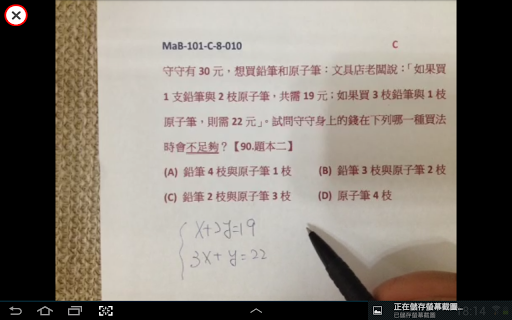 MaB-101-C-8-010
C
守守有 30 元，想買鉛筆和原子筆；文具店老闆說：「如果買
1 支鉛筆與 2 枝原子筆，共需 19 元；如果買 3 枝鉛筆與 1 枝
原子筆，則需 22 元」。試問守守身上的錢在下列哪一種買法
時會不足夠？【90.題本二】
(A) 鉛筆 4 枝與原子筆 1 枝
(B) 鉛筆 3 枝與原子筆 2 枝
(C) 鉛筆 2 枝與原子筆 3 枝
(D) 原子筆 4 枝
x+2y=19
3x+y=22
正在儲存螢幕截圖...
已儲存螢幕截圖
8:14